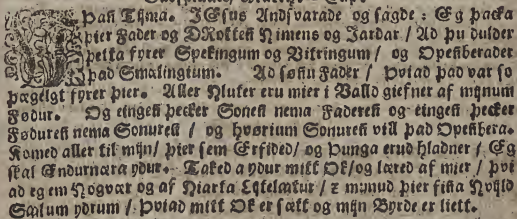 Þan Tijma. JEsus Andsvarade og sagde: Eg þacka
þier Fader og DRotten Himens og Jardar / Ad þu dulder
þetta fyrer Spekingum og Vitringum / og Openberader
þad Smælingium. Ad sönu Fader / þviad þad var so
þægelgt fyrer þier. Aller Hluter eru mier i Valld giefner af mijnum
Födur. Og eingen þecker Sonen nema Faderen og eingen þecker
Föduren nema Sonuren / og hvörium Sonuren vill þad Openbera.
Komed aller til mijn / þier sem Erfided / og Þunga erud hladner / Eg
skal Endurnæra ydur. Taked a ydur mitt Ok / og læred af mier / þvi
ad eg em Hogvær og af Hiarta Lijtelætur / z munud þier fina Hvijld
Sælum ydrum / þviad mitt Ok er sætt og mijn Byrde er liett.